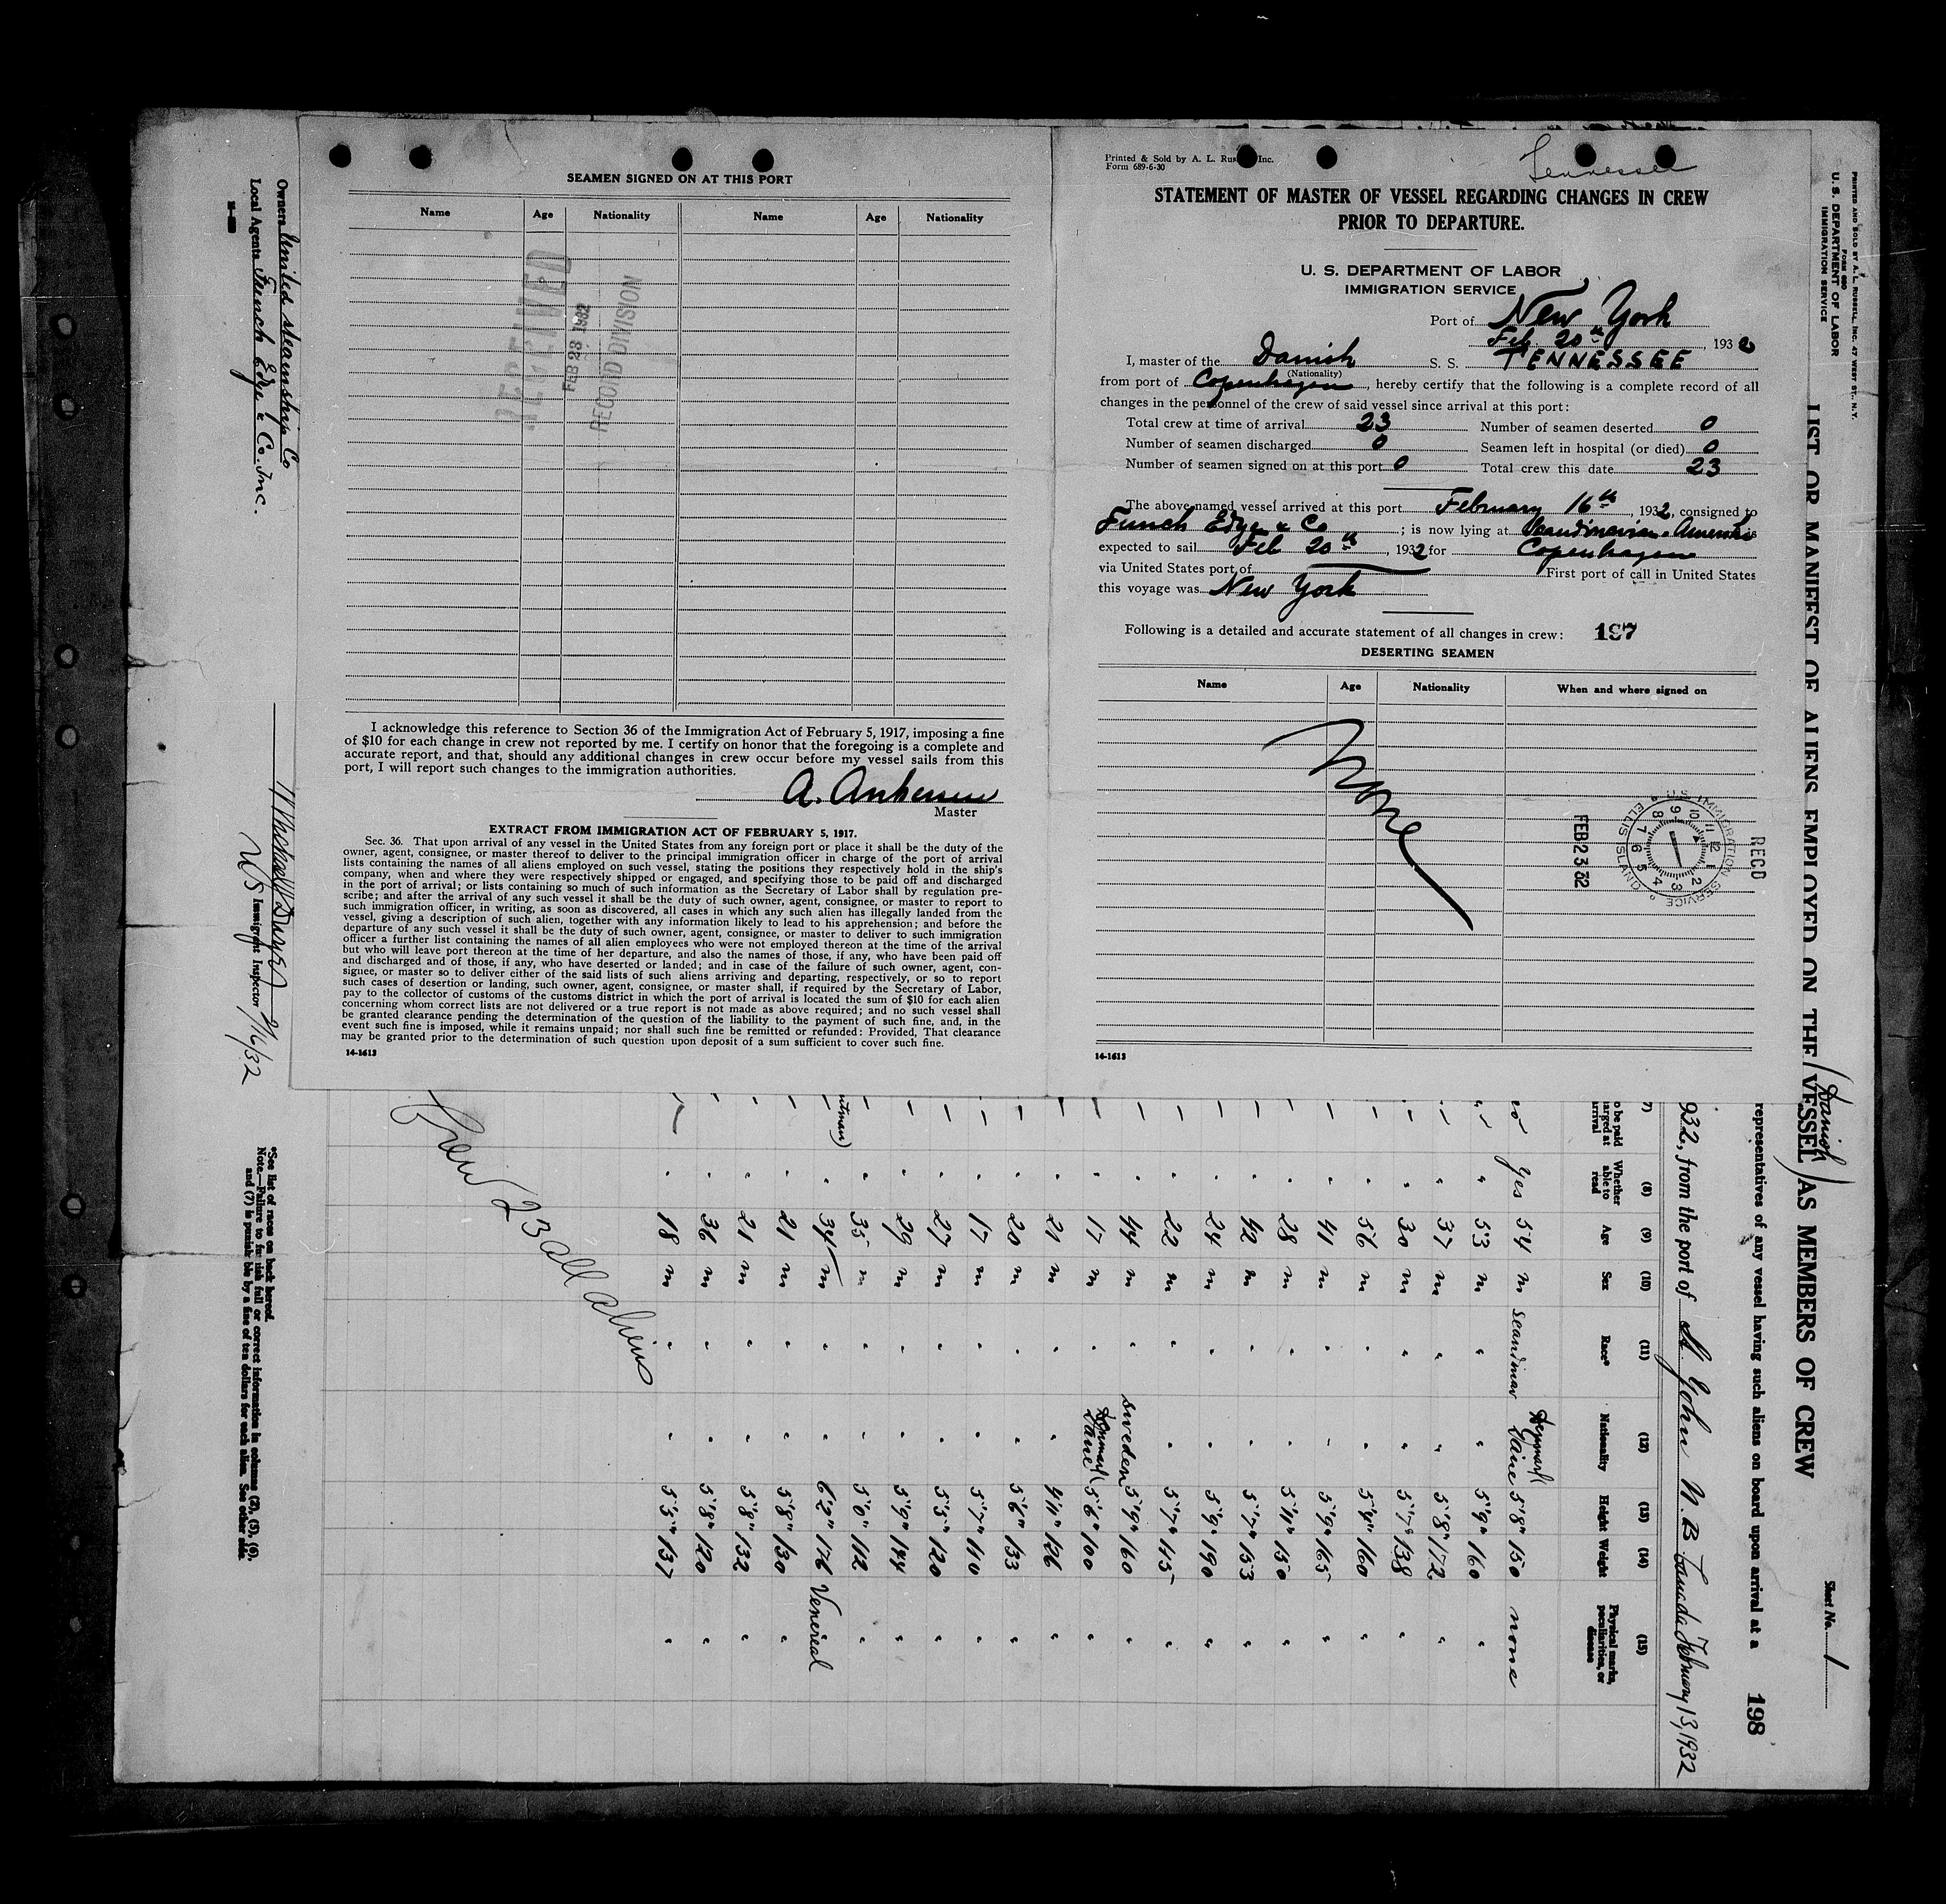 SEAMEN SIGNED ON AT THIS PORT
Name Age Nationality Name Age Nationality
RECEIVED
FEB 23 1932
RECORD DIVISION
I acknowledge this reference to Section 36 of the Immigration Act of February 5, 1917, imposing a fine
of $10 for each change in crew not reported by me. I certify on honor that the foregoing is a complete and
accurate report, and that, should any additional changes in crew occur before my vessel sails from this
port, I will report such changes to the immigration authorities.
A.
Master
EXTRACT FROM IMMIGRATION ACT OF FEBRUARY 5, 1917.
Sec. 36. That upon arrival of any vessel in the United States from any foreign port or place it shall be the duty of the
owner, agent, consignee, or master thereof to deliver to the principal immigration officer in charge of the port of arrival
lists containing the names of all aliens employed on such vessel, stating the positions they respectively hold in the ship's
company, when and where they were respectively shipped or engaged, and specifying those to be paid off and discharged
in the port of arrival; or lists containing so much of such information as the Secretary of Labor shall by regulation pre-
scribe; and after the arrival of any such vessel it shall be the duty of such owner, agent, consignee, or master to report to
such immigration officer, in writing, as soon as discovered, all cases in which any such alien has illegally landed from the
vessel, giving a description of such alien, together with any information likely to lead to his apprehension; and before the
departure of any such vessel it shall be the duty of such owner, agent, consignee, or master to deliver to such immigration
officer a further list containing the names of all alien employees who were not employed thereon at the time of the arrival
but who will leave port thereon at the time of her departure, and also the names of those, if any, who have been paid off
and discharged and of those, if any, who have deserted or landed; and in case of the failure of such owner, agent, con-
signee, or master so to deliver either of the said lists of such aliens arriving and departing, respectively, or so to report
such cases of desertion or landing, such owner, agent, consignee, or master shall, if required by the Secretary of Labor,
pay to the collector of customs of the customs district in which the port of arrival is located the sum of $10 for each alien
concerning whom correct lists are not delivered or a true report is not made as above required; and no such vessel shall
be granted clearance pending the determination of the question of the liability to the payment of such fine, and, in the
event such fine is imposed, while it remains unpaid; nor shall such fine be remitted or refunded: Provided, That clearance
may be granted prior to the determination of such question upon deposit of a sum sufficient to cover such fine.
14-1613
Printed & Sold by A. L. Inc.
Form 689-6-30
Tennessee
STATEMENT OF MASTER OF VESSEL REGARDING CHANGES IN CREW
PRIOR TO DEPARTURE.
U. S. DEPARTMENT OF LABOR
IMMIGRATION SERVICE
Port of New York
Feb 20th, 1932
I, master of the Danish S. S. TENNESSEE
(Nationality)
from port of Copenhagen, hereby certify that the following is a complete record of all
changes in the personnel of the crew of said vessel since arrival at this port:
Total crew at time of arrival 23 Number of seamen deserted 0
Number of seamen discharged 0 Seamen left in hospital (or died) 0
Number of seamen signed on at this port 0 Total crew this date 23
The above named vessel arrived at this port February 16th, 1932, consigned to
Funch Edye & Co; is now lying at Scandinavian-America is
expected to sail Feb 20th, 1932 for Copenhagen
via United States port of First port of call in United States
this voyage was New York
Following is a detailed and accurate statement of all changes in crew: 197
DESERTING SEAMEN
Name Age Nationality When and where signed on
None
RECD
U.S. IMMIGRATION SERVICE
ELLIS ISLAND
FEB 23 32
14-1613
PRINTED AND SOLD BY A. L. RUSSELL, INC. 47 WEST ST., N.Y.
FORM 680
U. S. DEPARTMENT OF LABOR
IMMIGRATION SERVICE
Sheet No. 1
LIST OR MANIFEST OF ALIENS EMPLOYED ON THE (Danish VESSEL) AS MEMBERS OF CREW
representatives of any vessel having such aliens on board upon arrival at a 198
932, from the port of St John N.B Canada February 13, 1932
7) (8) (9) (10) (11) (12) (13) (14) (15)
o be paid arged at arrival Whether able to read Age Sex Race* Nationality Height Weight Physical marks, peculiarities, or disease
no Yes 54 m Scandinav Denmark Dane 5'8" 150 none
" " 53 m " " 5'9" 160 "
" 37 m " " 5'8" 172 "
" 30 m " " 5'7" 138 "
" 56 m " " 5'4" 160 "
" 41 m " " 5'9" 165 "
" 28 m " " 5'11" 150 "
" 42 m " " 5'7" 153 "
" 24 m " " 5'9" 190 "
" 22 m " " 5'7" 115 "
" 44 m " Sweden 5'9" 160 "
" 17 m " Denmark Dane 5'6" 100 "
" 21 m " " 4'11" 126 "
" 20 m " " 5'6" 133 "
" 17 m " " 5'7" 110 "
" 27 m " " 5'5" 120 "
" 29 m " " 5'9" 144 "
" 35 m " " 5'0" 112 "
" 34 m " " 6'2" 176 Venereal
" 21 m " " 5'8" 130 "
" 21 m " " 5'8" 132 "
" 36 m " " 5'8" 120 "
" 18 m " " 5'5" 137 "
Crew 23 all aliens
Owners United Steamship Co
Local Agents Funch Edye & Co. Inc.
US Immigrant Inspector 2/16/32
*See list of races on back hereof.
Note.—Failure to furnish full or correct information in columns (2), (5), (6),
and (7) is punishable by a fine of ten dollars for each alien. See other side.